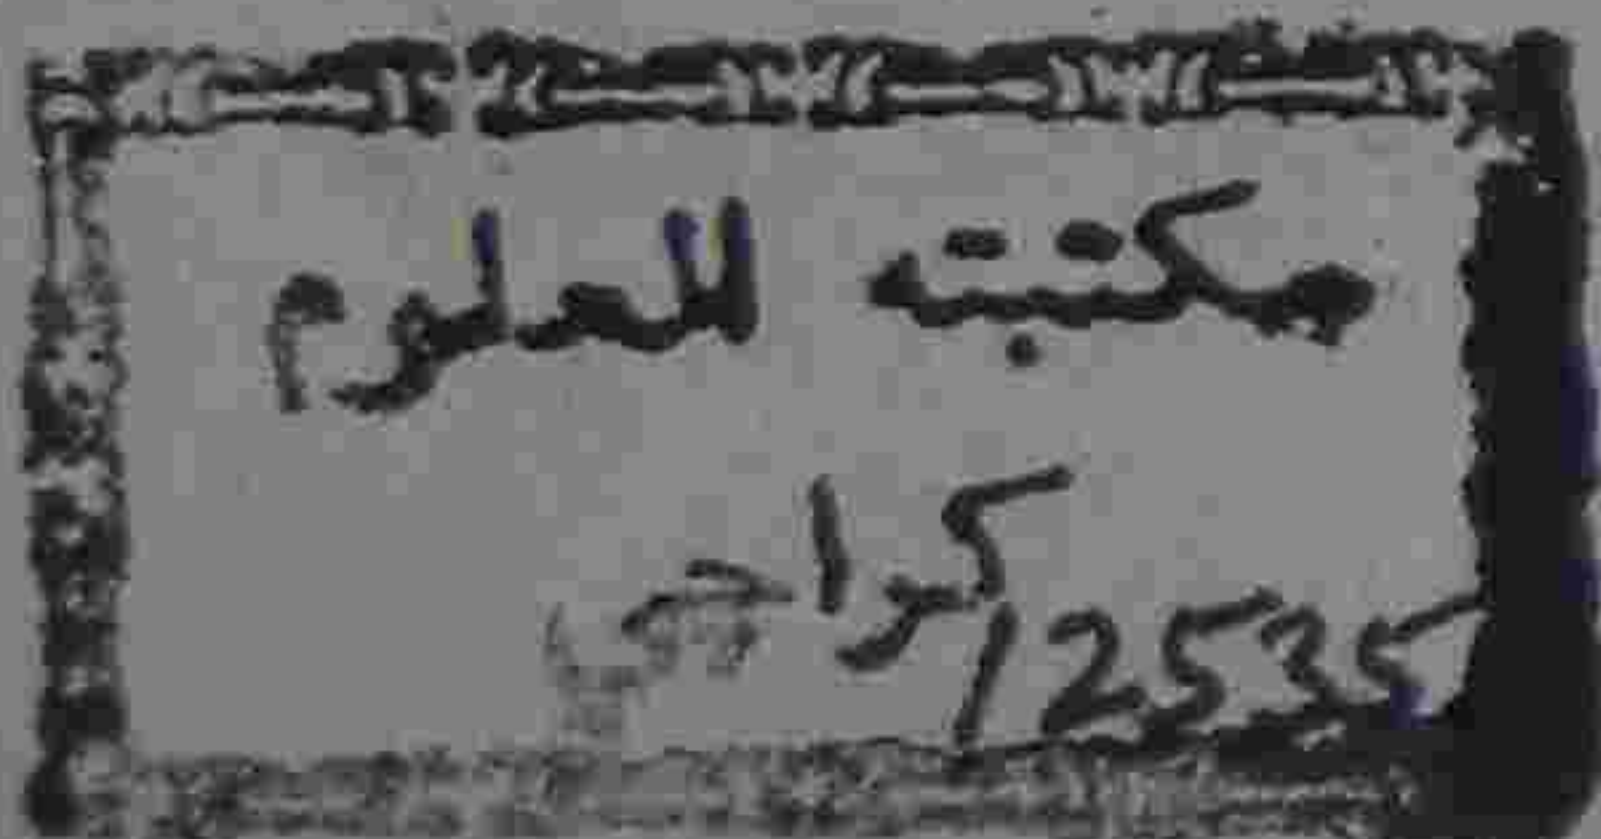 مكتبہ العلوم
کراچی
12535